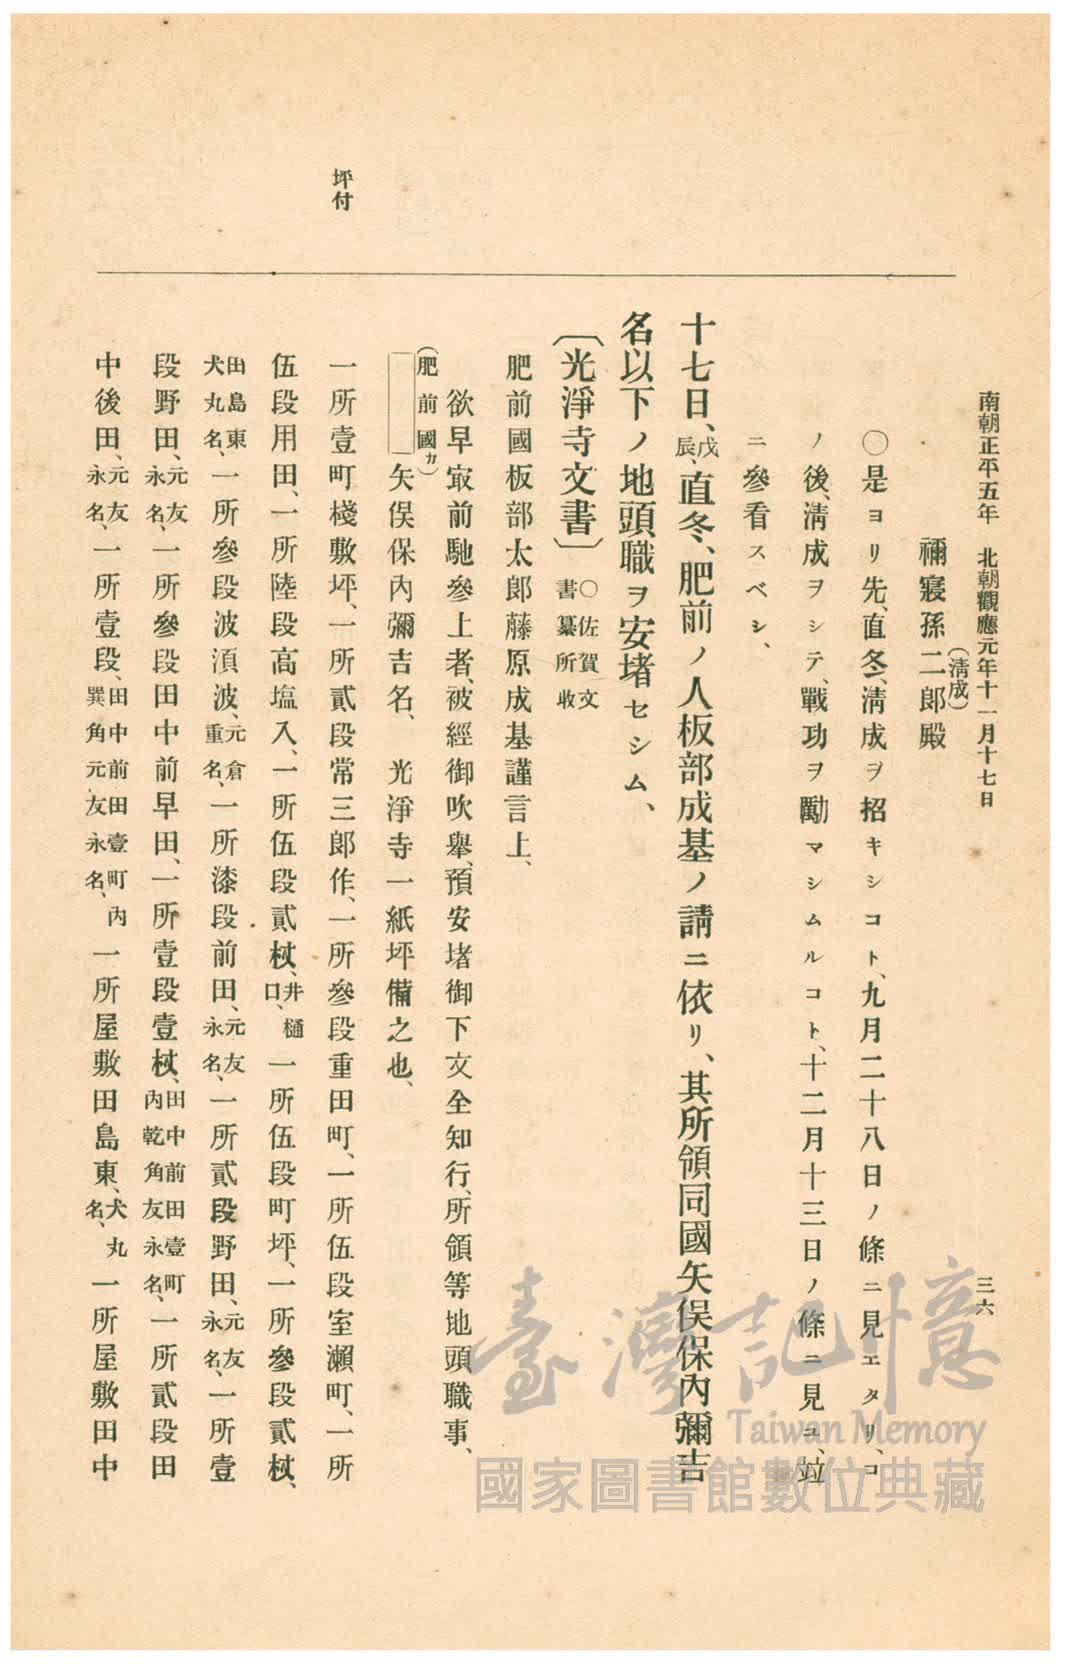 南朝正平五年　北朝觀應元年十一月十七日　三六
禰寢孫二郎殿
(淸成)
〇是ヨリ先、直冬、淸成ヲ招キシコト、九月二十八日ノ條ニ見エタリ、コ
ノ後、淸成ヲシテ、戰功ヲ勵マシムルコト、十二月十三日ノ條ニ見ユ、竝
ニ參看スベシ、
十七日、戊辰、直冬、肥前ノ人板部成基ノ請ニ依リ、其所領同國矢俣保內彌吉
名以下ノ地頭職ヲ安堵セシム、
〔光淨寺文書〕〇佐賀文書纂所收
肥前國板部太郎藤原成基謹言上、
欲早㝡前馳參上者、被經御吹擧、預安堵御下文全知行、所領等地頭職事、
(肥前國カ)
矢俣保內彌吉名、　光淨寺一紙坪備之也、
坪付
一所壹町棧敷坪、一所貳段常三郎作、一所參段重田町、一所伍段室瀨町、一所
伍段用田、一所陸段高塩入、一所伍段貳杖、井樋口、一所伍段町坪、一所參段貳杖、
田島東犬丸名、一所參段波湏波、元倉重名、一所漆段前田、元友永名、一所貳段野田、元友永名、一所壹
段野田、元友永名、一所參段田中前早田、一所壹段壹杖、田中前田壹町內乾角友永名、一所貳段田
中後田、元友永名、一所壹段、田中前田壹町內巽角元友永名、一所屋敷田島東、犬丸名、一所屋敷田中
臺灣記憶
Taiwan Memory
國家圖書館數位典藏